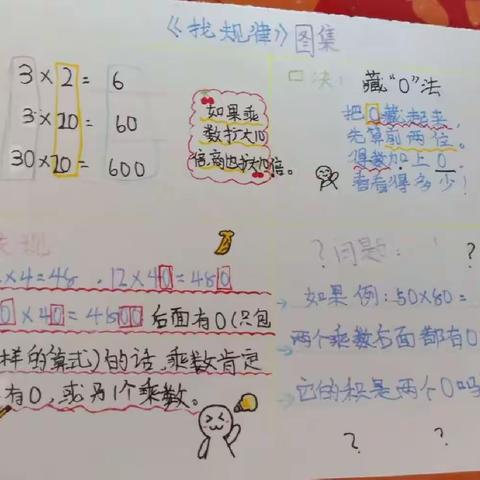 《找规律》图集
3×2= 6
3×20= 60
30×20= 600
如果乘
数扩大10
倍,商也扩大10倍。
口决:
藏“0”法
把0藏起来,
先算前两位。
得数加上0.
看看得多少!
发规
×4=48 . 12×40=480
0×40=4800 后面有0(只包
样的算式)的话,乘数肯定
有0,或为1个乘数。
?问题: ?
→ 如果例:50×80=
→ 两个乘数后面都有0
→ 它的积是两个0吗
? ?